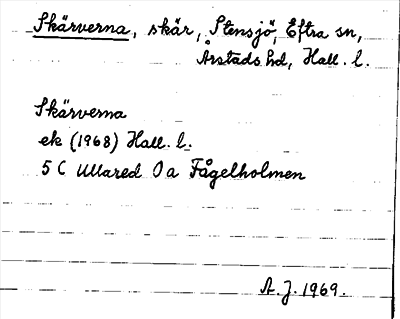 Skärverna, skär, Stensjö, Eftra sn,
Årstads hd, Hall. l.
Skärverna
ek (1968) Hall. l.
5 C Ullared 0 a Fågelholmen
A. J. 1969.